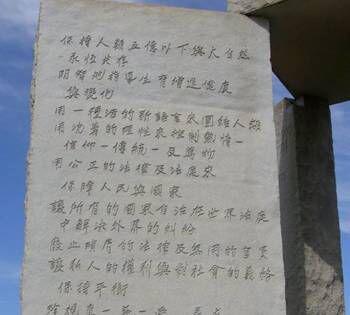 保持人類五億以下與大自然
永恆共存
明智地指導生育增進健康
與變化
用一種活的新語言來團結人類
用沈著的理性來控制熱情—
信仰—傳統—及萬物
用公正的法律及法庭來
保障人民與國家
讓所有的國家自治在世界法庭
中解決外界的糾紛
廢止瑣屑的法律及無用的官員
讓私人的權利與對社會的義務
保持平衡
真—美—愛—